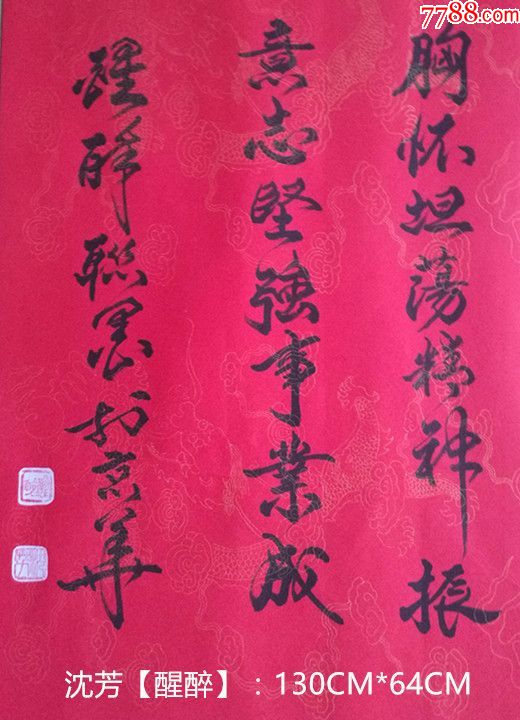 7788.com
胸怀坦荡精神振
意志堅強事業成
醒醉聯墨於京華
沈芳【醒醉】：130CM*64CM